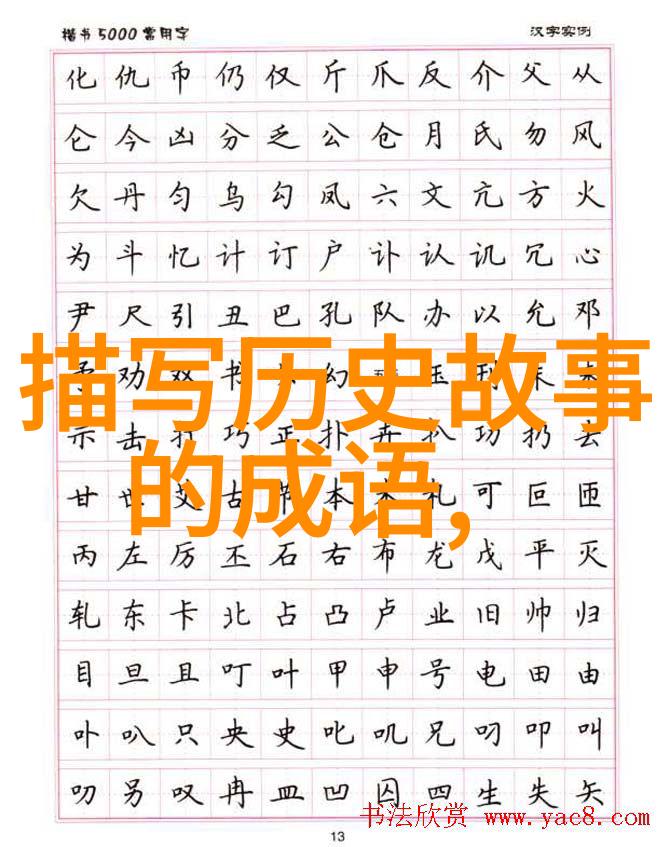 楷书5000常用字 汉字实例
化仇币仍仅斤爪反介父从
仑今凶分乏公仓月氏勿风
欠丹匀乌勾凤六文亢方火
为斗忆计订户讣认讥冗心
尹尺引丑巴孔队办以允邓
劝双书幻
描写历史故事
示击打巧正扑卉扒功扔去
的成语,
甘世艾古节本术札可叵匝
丙左厉丕石右布龙戊平灭
轧东卡北占凸卢业旧帅归
目旦且叮叶甲申号电田由
卟叭只央史叱叽兄叼叩叫
叨另叹冉皿凹囚四生失矢
书法欣赏 www.yac8.com
13